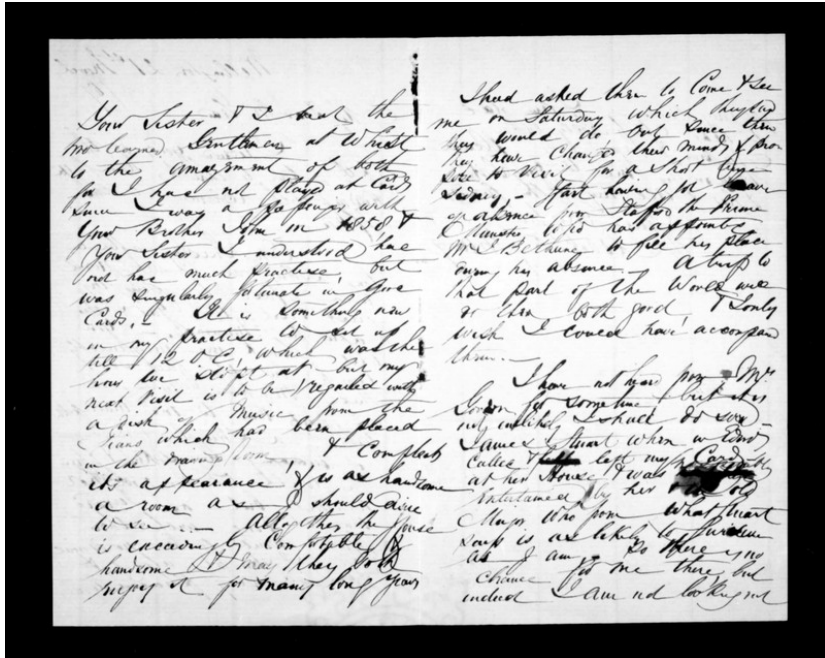 Your Sister & I beat the
two learned Gentlemen at Whist
to the amazement of both
for I have not played at Cards
since I was a
Your Brother John in 1858 &
Your Sister I understood had
not had much practise, but
was singularly fortunate in
Cards,- It is something new
in my practise to sit up
till 12 OC, which was the
hour we at but my
next visit is to be regaled with
a dish of Music from the
Piano which had been placed
in the drawing room, & Compleats
its appearance, & is as handsome
a room as I should desire
to see .- Altogether the House
is exceedingly Comfortable &
handsome & May they both
enjoy it for many long years
I had asked them to Come & See
me on Saturday which they said
they would do but Since then
they have changed their minds &
to Visit for a Short time
Sidney,- Stuart having got leave
of absence from Stafford the Prime
Minister who has appointed
Mr Bethune to fill his place
during his absence - A trip to
that part of the World will
do them both good, & I only
wish I could have accompanied
them.-
I have not heard from Mrs
Gordon for sometime, but it is
not unlikely I shall do soon
James Stuart when in
called & left my Card
at her House & was
entertained by her & the old
Major who from what Stuart
says is as likely to Survive
as I am - So there is no
chance for me there but
indeed I am not looking out